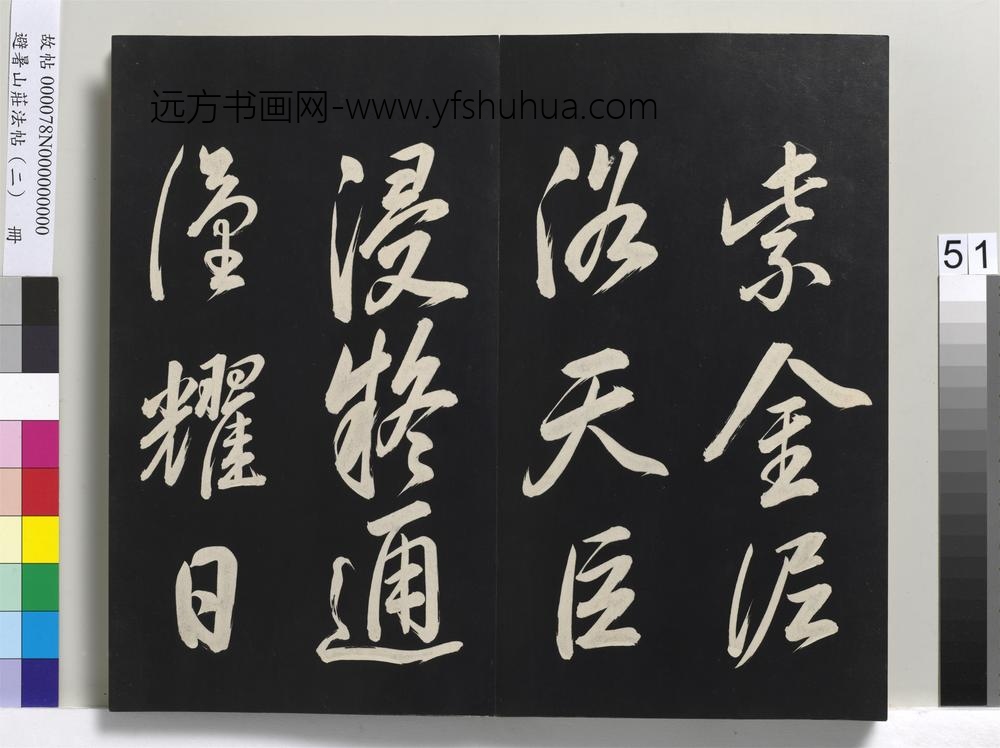 故帖 000078N000000000
避暑山莊法帖（二） 冊
远方书画网-www.yfshuhua.com
51
紫金泥
浴天臣
浸通
耀日